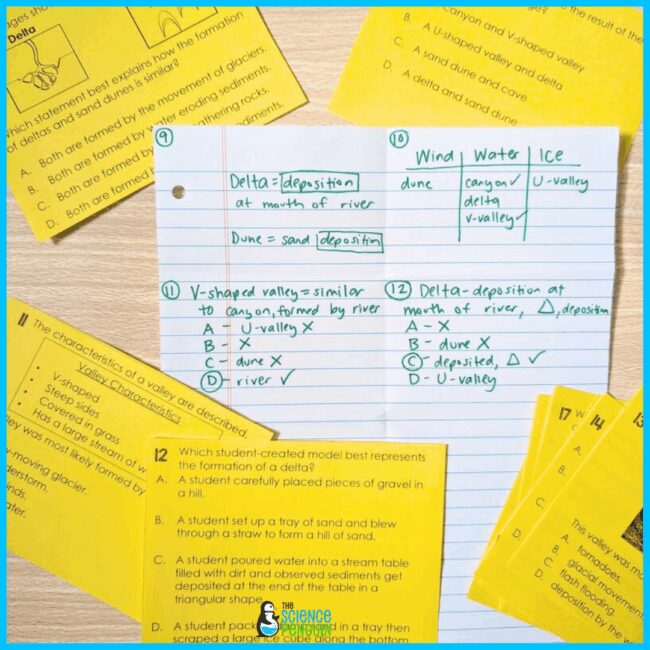 ages sho
Delta
hich statement best explains how the formation
of deltas and sand dunes is similar?
A. Both are formed by the movement of glaciers.
B. Both are formed by water eroding sediments.
C. Both are formed by athering rocks.
D. Both are formed b diments.
ge?
s the result of the
canyon and V-shaped valley
B. A U-shaped valley and delta
C. A sand dune and cave
D. A delta and sand dune
9
Delta = deposition
at mouth of river
Dune = sand deposition
10
Wind Water Ice
dune canyon ✓ U-valley
delta
v-valley ✓
11 V-shaped valley = similar
to canyon, formed by river
A - U-valley X
B - X
C - dune X
D - river ✓
12 Delta - deposition at
mouth of river, △, deposition
A - X
B - dune X
C - deposited, △ ✓
D - U-valley
11 The characteristics of a valley are described.
Valley Characteristics
• V-shaped
• Steep sides
• Covered in grass
• Has a large stream of w
ley was most likely formed by
-moving glacier.
derstorm.
inds.
ater.
12 Which student-created model best represents
the formation of a delta?
A. A student carefully placed pieces of gravel in
a hill.
B. A student set up a tray of sand and blew
through a straw to form a hill of sand.
C. A student poured water into a stream table
filled with dirt and observed sediments get
deposited at the end of the table in a
triangular shape.
D. A student pack sand in a tray then
scraped a large ice cube along the bottom
THE
SCIENCE
PENGUIN
17 W
A.
B.
C.
D.
14
A.
B.
C.
D.
13
This valley was mo
A. tornadoes.
B. glacial movemen
C. flash flooding.
D. deposition by the wi